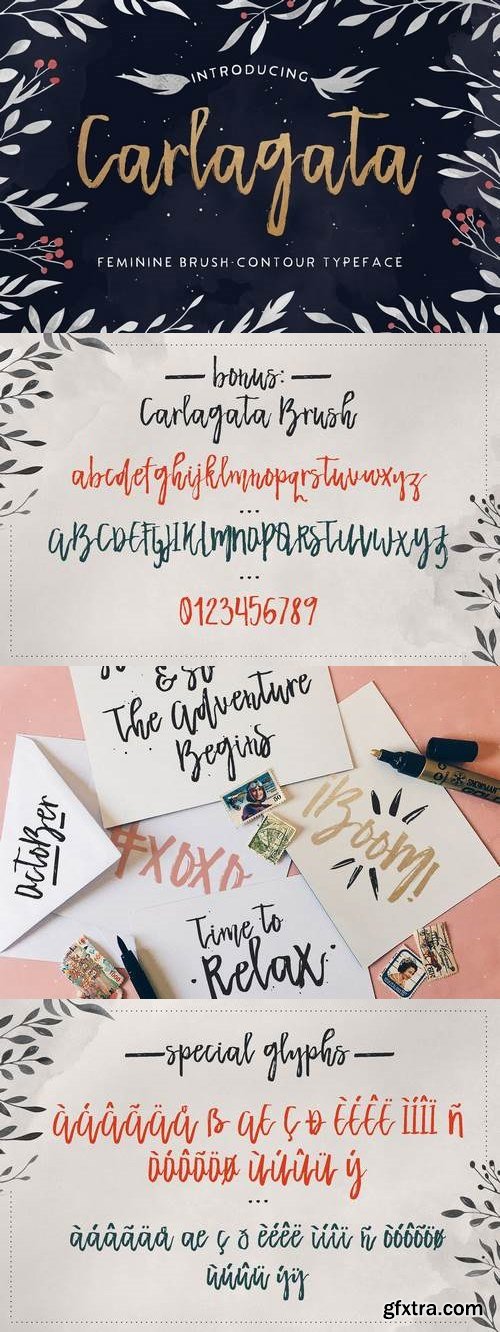 INTRODUCING
Carlagata
FEMININE BRUSH-CONTOUR TYPEFACE
bonus:
Carlagata Brush
abcdefghijklmnopqrstuvwxyz
...
ABCDEFGJIKLMNOPQRSTUVWXYZ
...
0123456789
& So
The Adventure
Begins
OctoBer
#XOXO
¡BOOM!
Time to
·Relax·
special glyphs
ÀÁÂÃÄÅ ß AE Ç Ð ÈÉÊË ÌÍÎÏ Ñ
ÒÓÔÕÖØ ÙÚÛÜ Ý
...
àáâãäå ae ç ð èéêë ìíîï ñ òóôõöø
ùúûü ýÿ
gfxtra.com